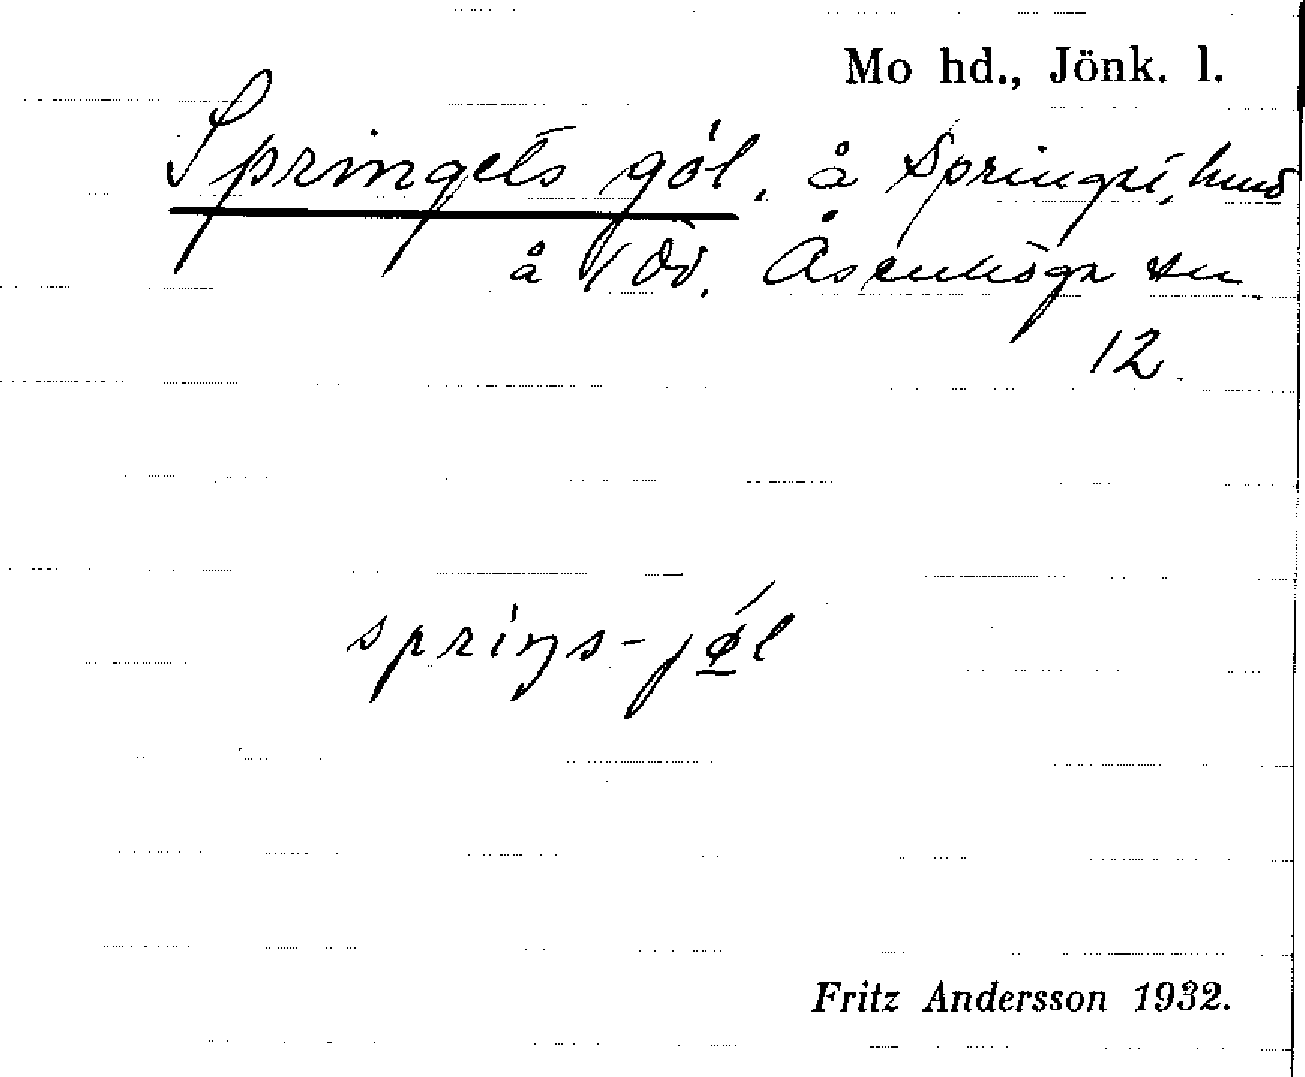 Mo hd., Jönk. l.
Springets göl, å Springet, hmd
å Ödö. Åsenhöga sn
12.
spriŋs-jǿ̱l
Fritz Andersson 1932.